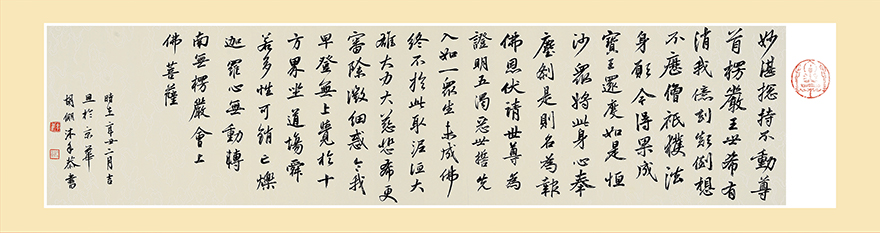 妙湛摠持不動尊
首楞嚴王世希有
消我億劫顛倒想
不歷僧祇獲法
身願今得果成
寶王還度如是恒
沙眾將此身心奉
塵刹是則名為報
佛恩伏請世尊為
證明五濁惡世誓先
入如一眾生未成佛
終不於此取泥洹大
雄大力大慈悲希更
審除微細惑令我
早登無上覺於十
方界坐道場舜
若多性可銷亡爍
迦羅心無動轉
南無楞嚴會上
佛菩薩
時在辛丑二月吉
旦於京華
胡沐手恭書